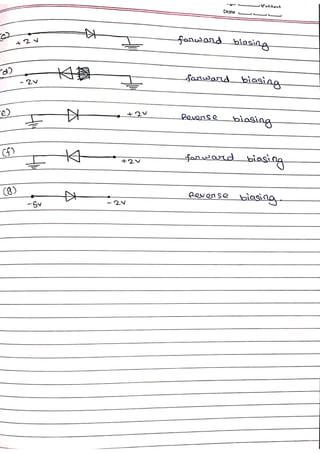 Date
(c) +2v forward biasing
(d) -2v forward biasing
(e) +2v Reverse biasing
(f) +2v forward biasing
(g) -5v -2v Reverse biasing.